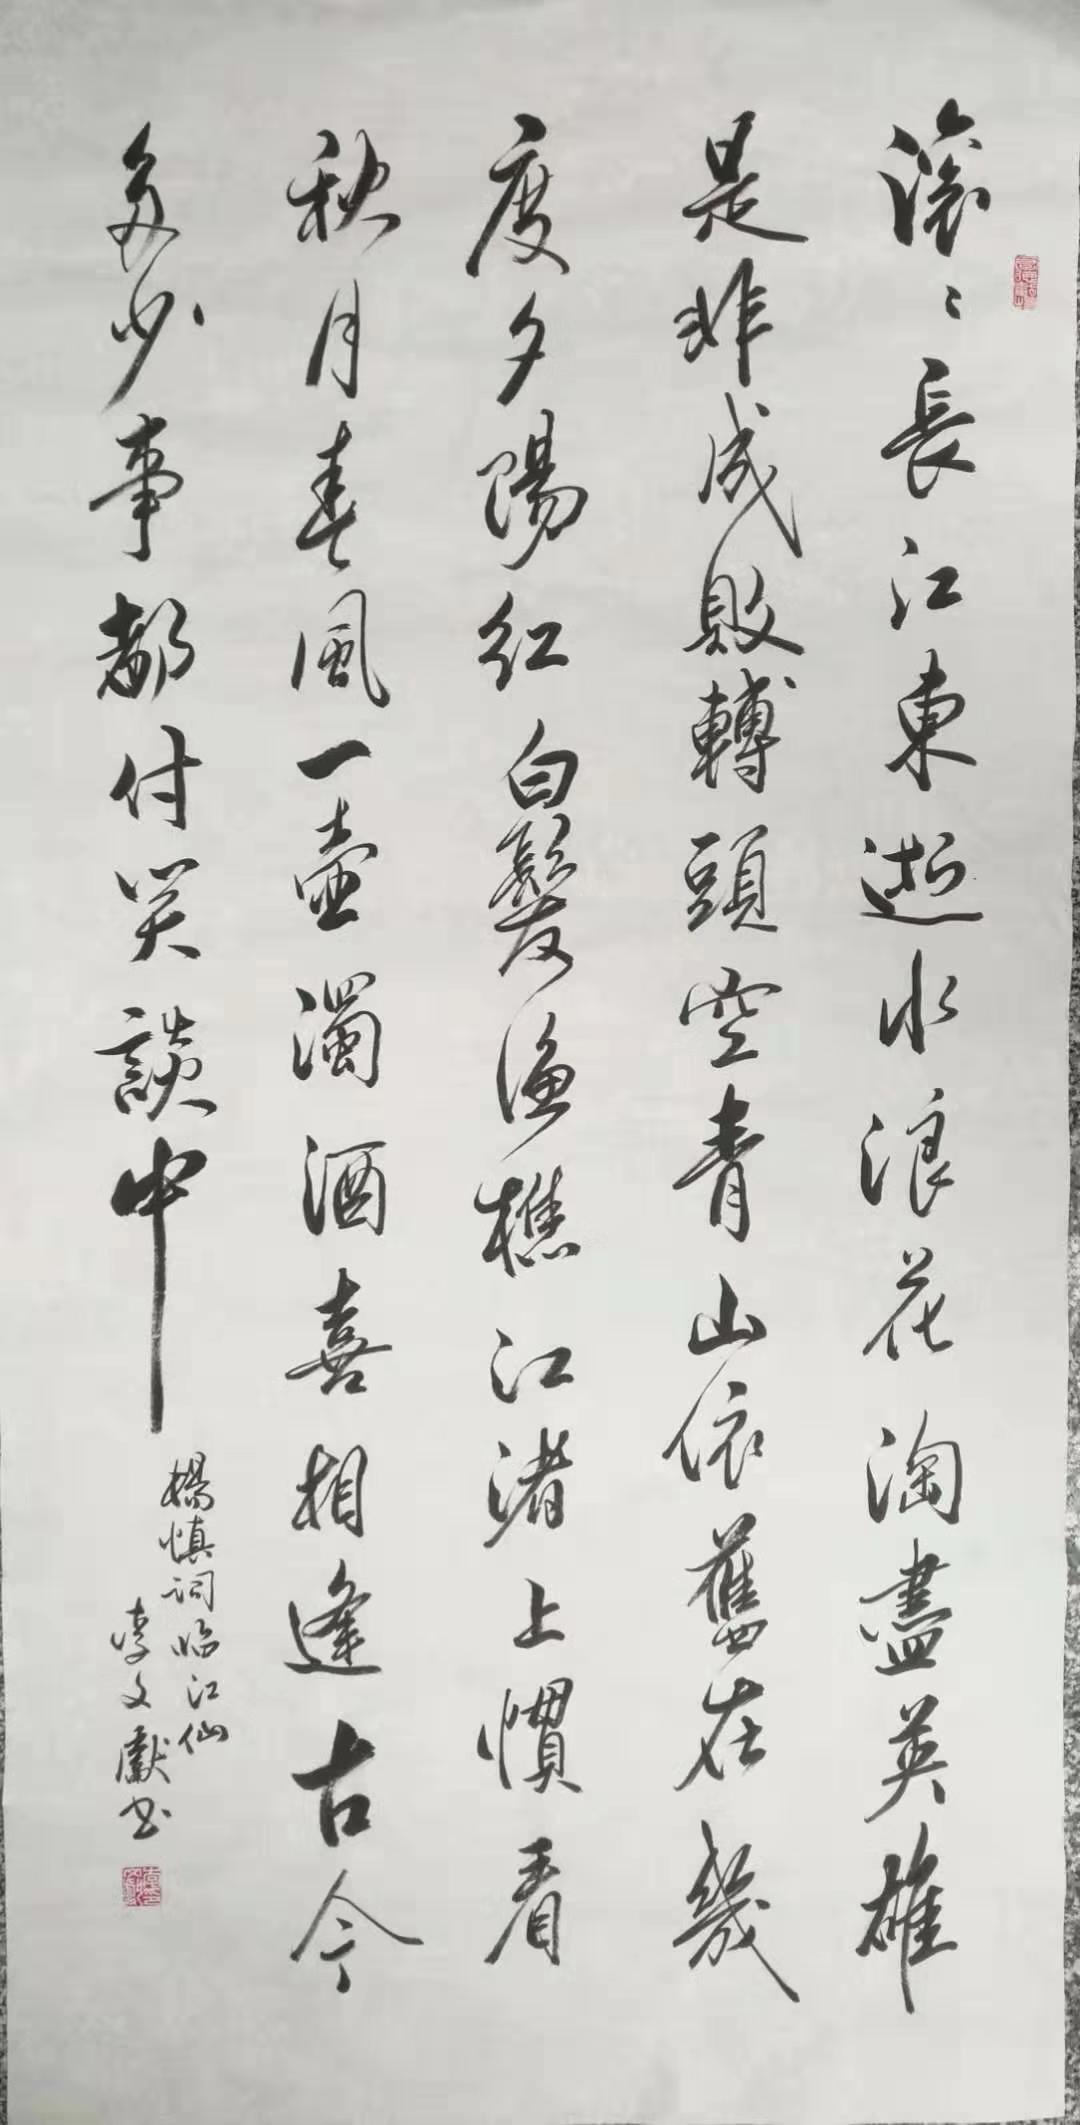 滾〻長江東逝水浪花淘盡英雄
是非成敗轉頭空青山依舊在幾
度夕陽紅白髮漁樵江渚上慣看
秋月春風一壺濁酒喜相逢古今
多少事都付笑談中
楊慎词临江仙
李文獻书